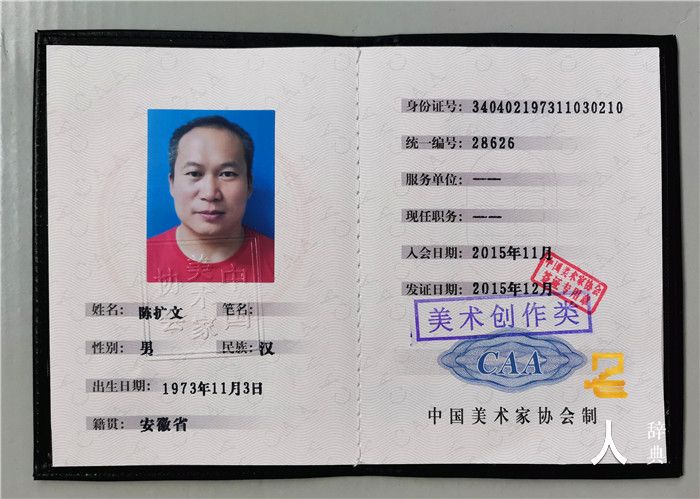 中国
美术家
协会
姓名: 陈扩文 笔名:
性别: 男 民族: 汉
出生日期: 1973年11月3日
籍贯: 安徽省
身份证号: 340402197311030210
统一编号: 28626
服务单位: ——
现任职务: ——
入会日期: 2015年11月
发证日期: 2015年12月
中国美术家协会
美术创作类
CAA
中国美术家协会制
人 辞典